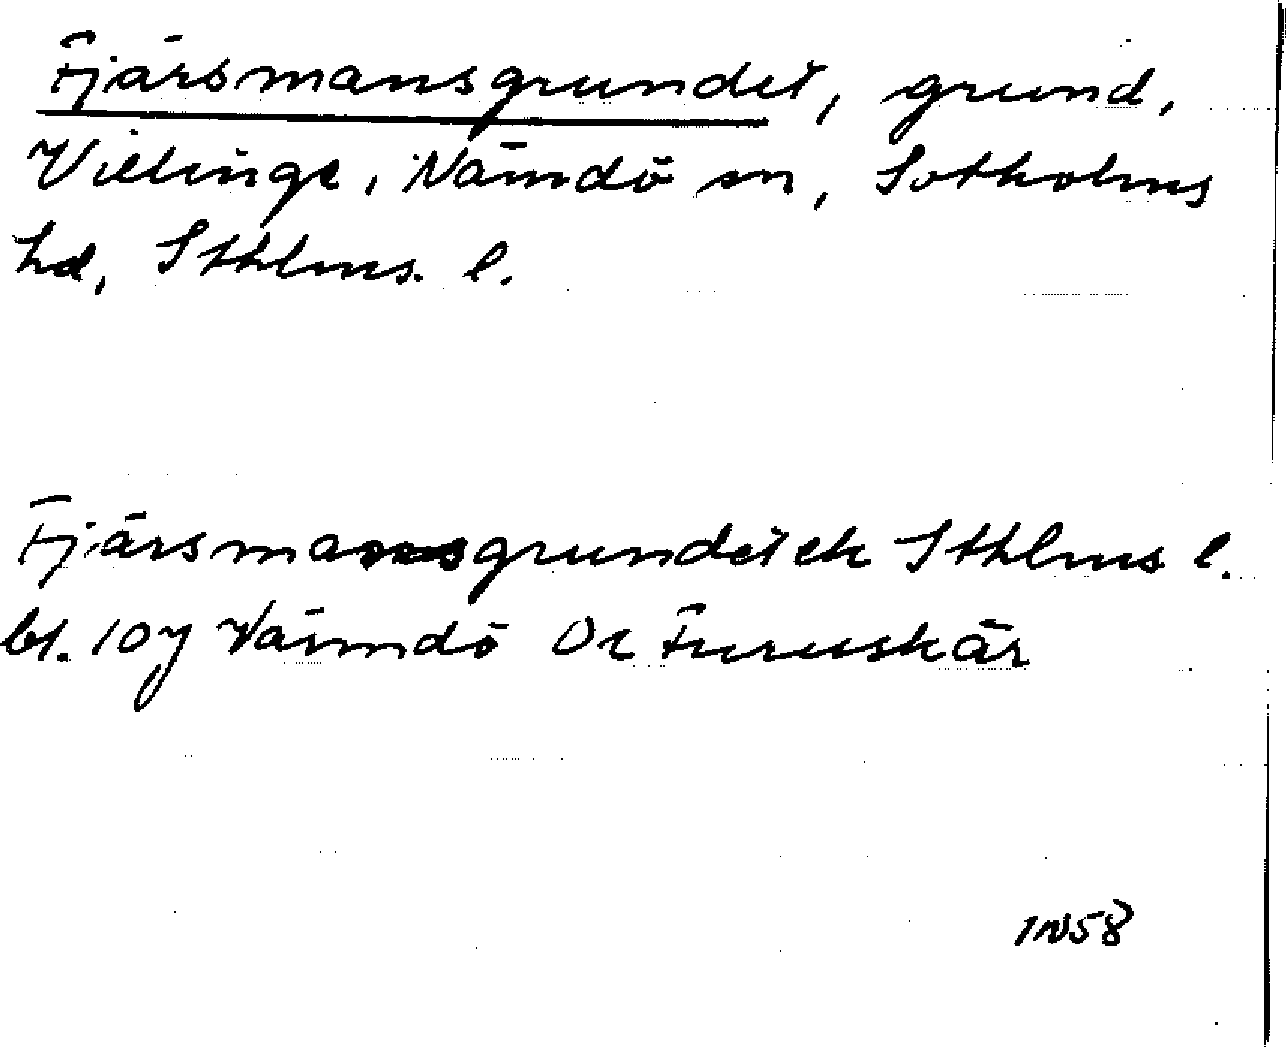 Fjärsmansgrundet, grund,
Villinge, Nämdö sn, Sotholms
hd, Sthlms. l.
Fjärsmansgrundet ek Sthlms l.
bl. 107 Värmdö Ox Furuskär
IN58